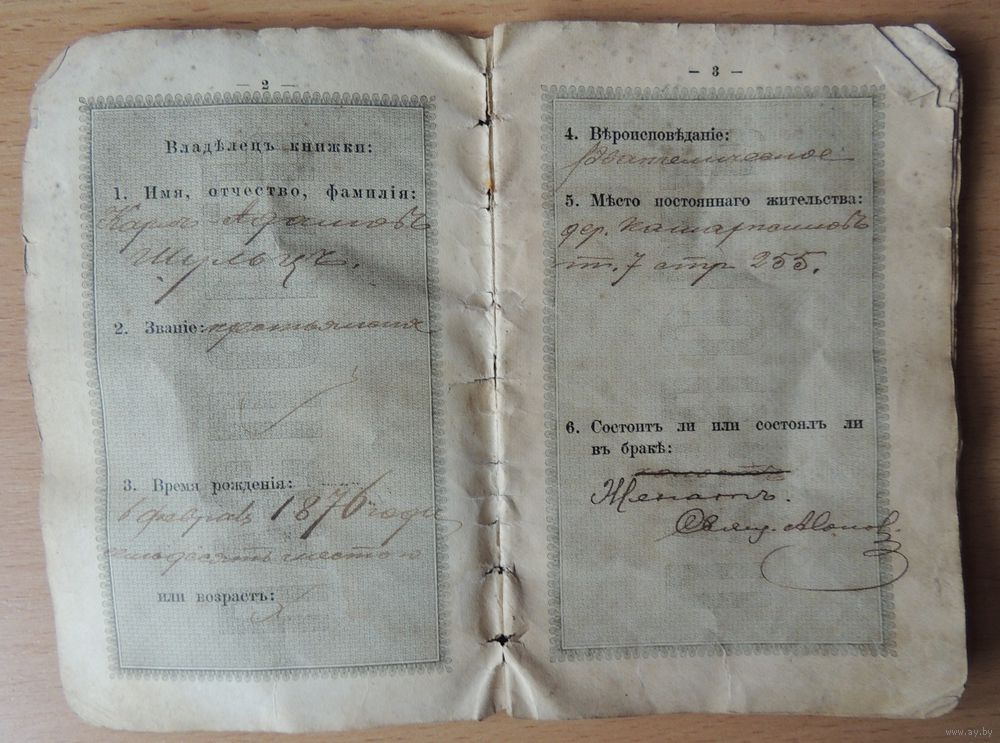 — 2 —
Владѣлецъ книжки:
1. Имя, отчество, фамилія:
Карлъ Адамовъ
Шульцъ.
2. Званіе: крестьянинъ
3. Время рожденія:
6 февраля 1876 года
семьдесятъ шестого
или возрастъ:
— 3 —
4. Вѣроисповѣданіе:
Евангелическое
5. Мѣсто постояннаго жительства:
дер.
т. 7 стр 255.
6. Состоитъ ли или состоялъ ли
въ бракѣ:
Женатъ.
Свящ.
www.ay.by